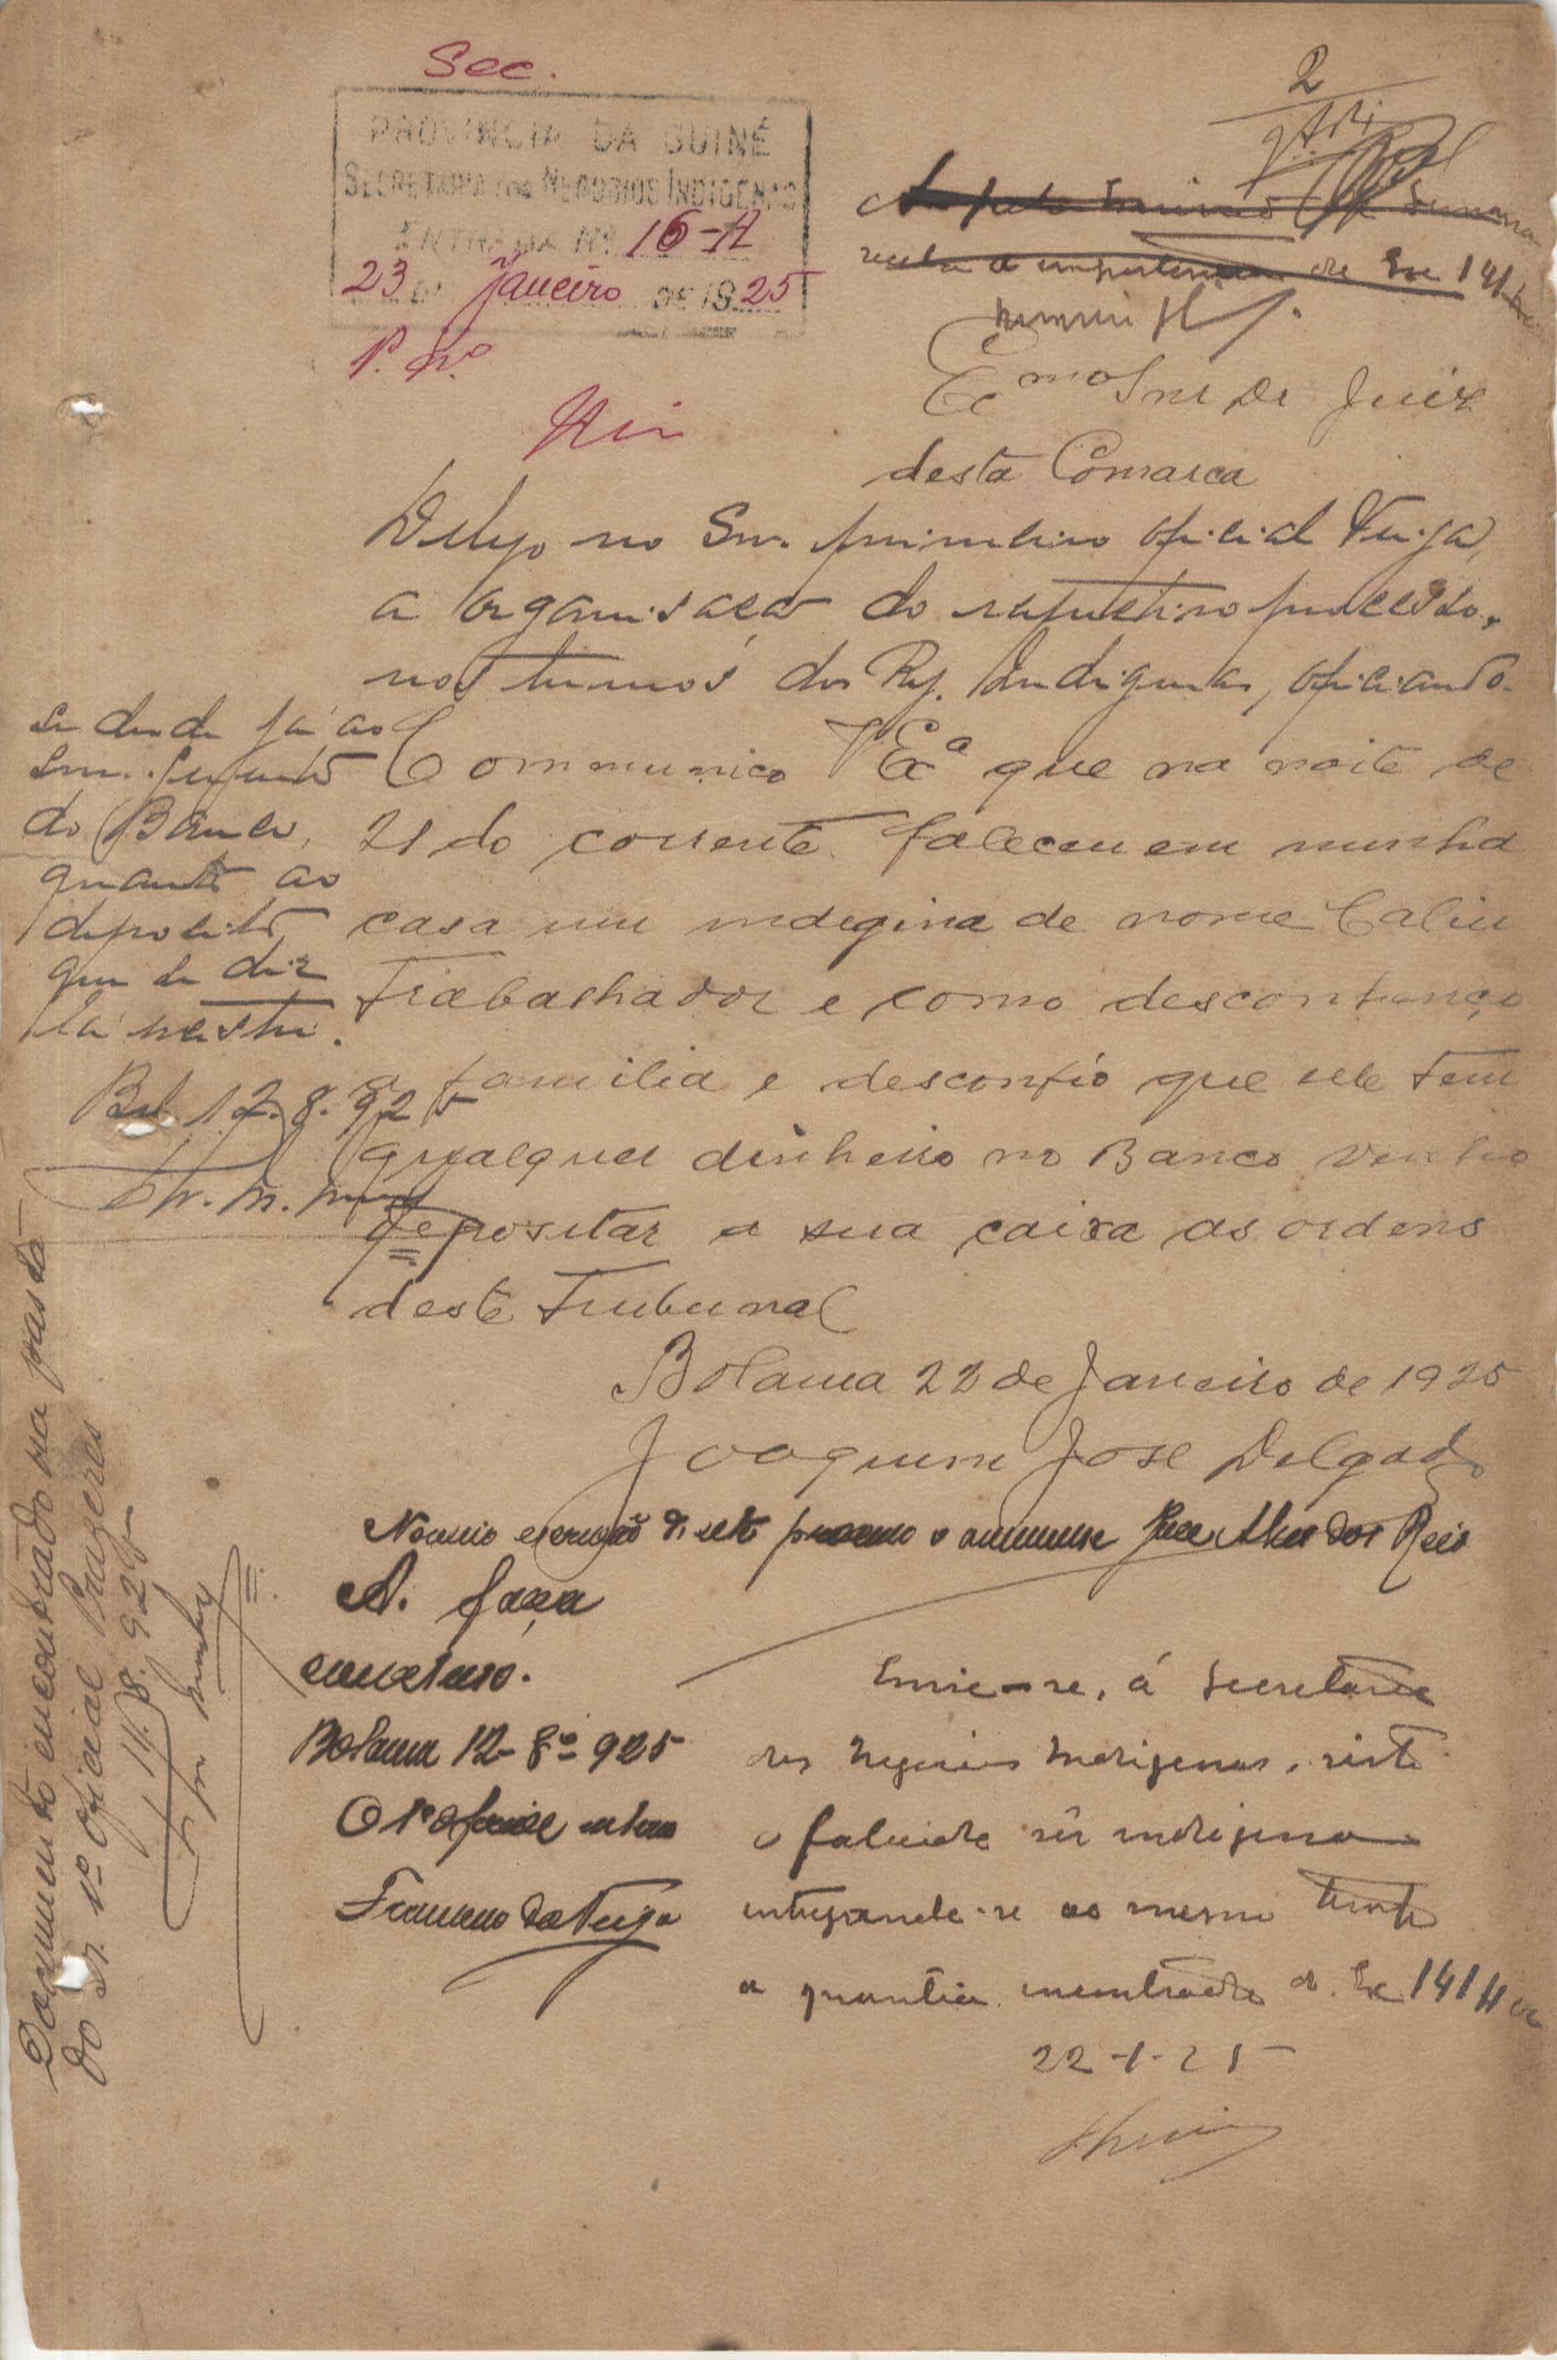 Sec.
2
PROVINCIA DA GUINÉ
SECRETARIA dos NEGOCIOS INDIGENAS
ENTRADA Nº 16-A
23 DE Janeiro DE 1925
P. nº
de Esc 141
Exmo Snr Dr Juiz
desta Comarca
Delego no Snr. primeiro oficial Veiga,
a organisação do respectivo processo,
nos termos do Reg. Indigenas, oficiando-
se desde já ao
Snr. gerente
do Banco,
quanto ao
deposito
que se diz
lá existir.
Bol. 12.8.925
Communico VExª que na noite de
21 do corrente faleceu em minha
casa um indegina de nome Caliu
trabachador e como desconheço
a familia e desconfio que ele tem
qualquer dinheiro no Banco venho
depositar a sua caixa as ordens
deste Tribunal
Bolama 22 de Janeiro de 1925
Joaquim José Delgado
Nomeio escrivão deste processo o amanuense José Alves dos Reis
A. faça
concluso.
Bolama 12-8º-925
O 1º oficial
Francisco da Veiga
Envie-se, á Secretaria
dos Negocios Indigenas, visto
o falecido sêr indigena
entregando-se ao mesmo tempo
a quantia encontrada de Esc 141
22-1-25
Documento encontrado na pasta
do Sr. 1º Oficial Prazeres
14.8.925